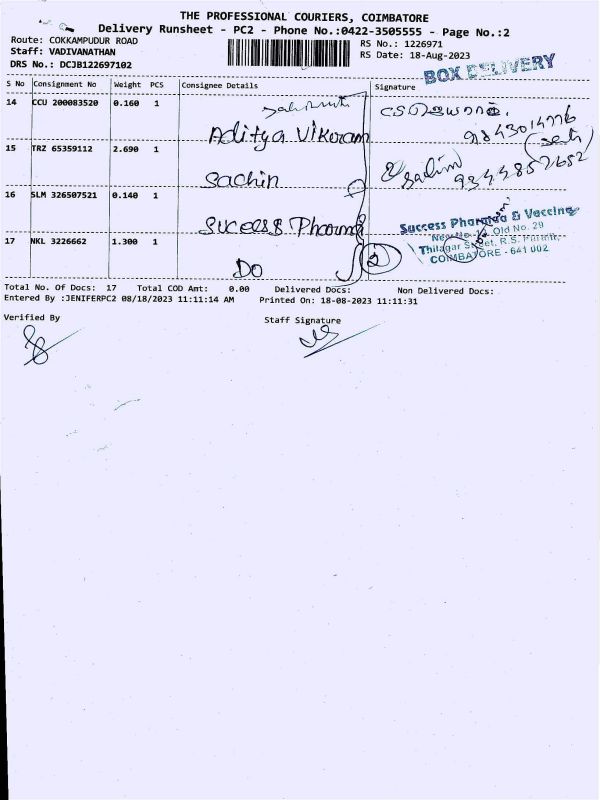 THE PROFESSIONAL COURIERS, COIMBATORE
Delivery Runsheet - PC2 - Phone No.:0422-3505555 - Page No.:2
Route: COKKAMPUDUR ROAD
RS No.: 1226971
Staff: VADIVANATHAN
RS Date: 18-Aug-2023
DRS No.: DCJB122697102
BOX DELIVERY
S No Consignment No Weight PCS Consignee Details Signature
14 CCU 200083520 0.160 1
Aditya Vikram
9843014776
15 TRZ 65359112 2.690 1
Sachin
Salim
9344857652
16 SLM 326507521 0.140 1
Sucess Pharma
Success Pharma & Vaccine
Old No. 29
17 NKL 3226662 1.300 1
Do
2
Thilagar Street, R.S. Puram,
COIMBATORE - 641 002
Total No. Of Docs: 17 Total COD Amt: 0.00 Delivered Docs: Non Delivered Docs:
Entered By :JENIFERPC2 08/18/2023 11:11:14 AM Printed On: 18-08-2023 11:11:31
Verified By Staff Signature